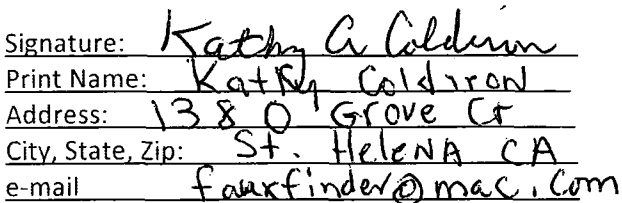 Signature: Kathy A Coldiron
Print Name: Kathy Coldiron
Address: 1380 Grove Ct
City, State, Zip: St. Helena CA
e-mail fauxfinder@mac.com